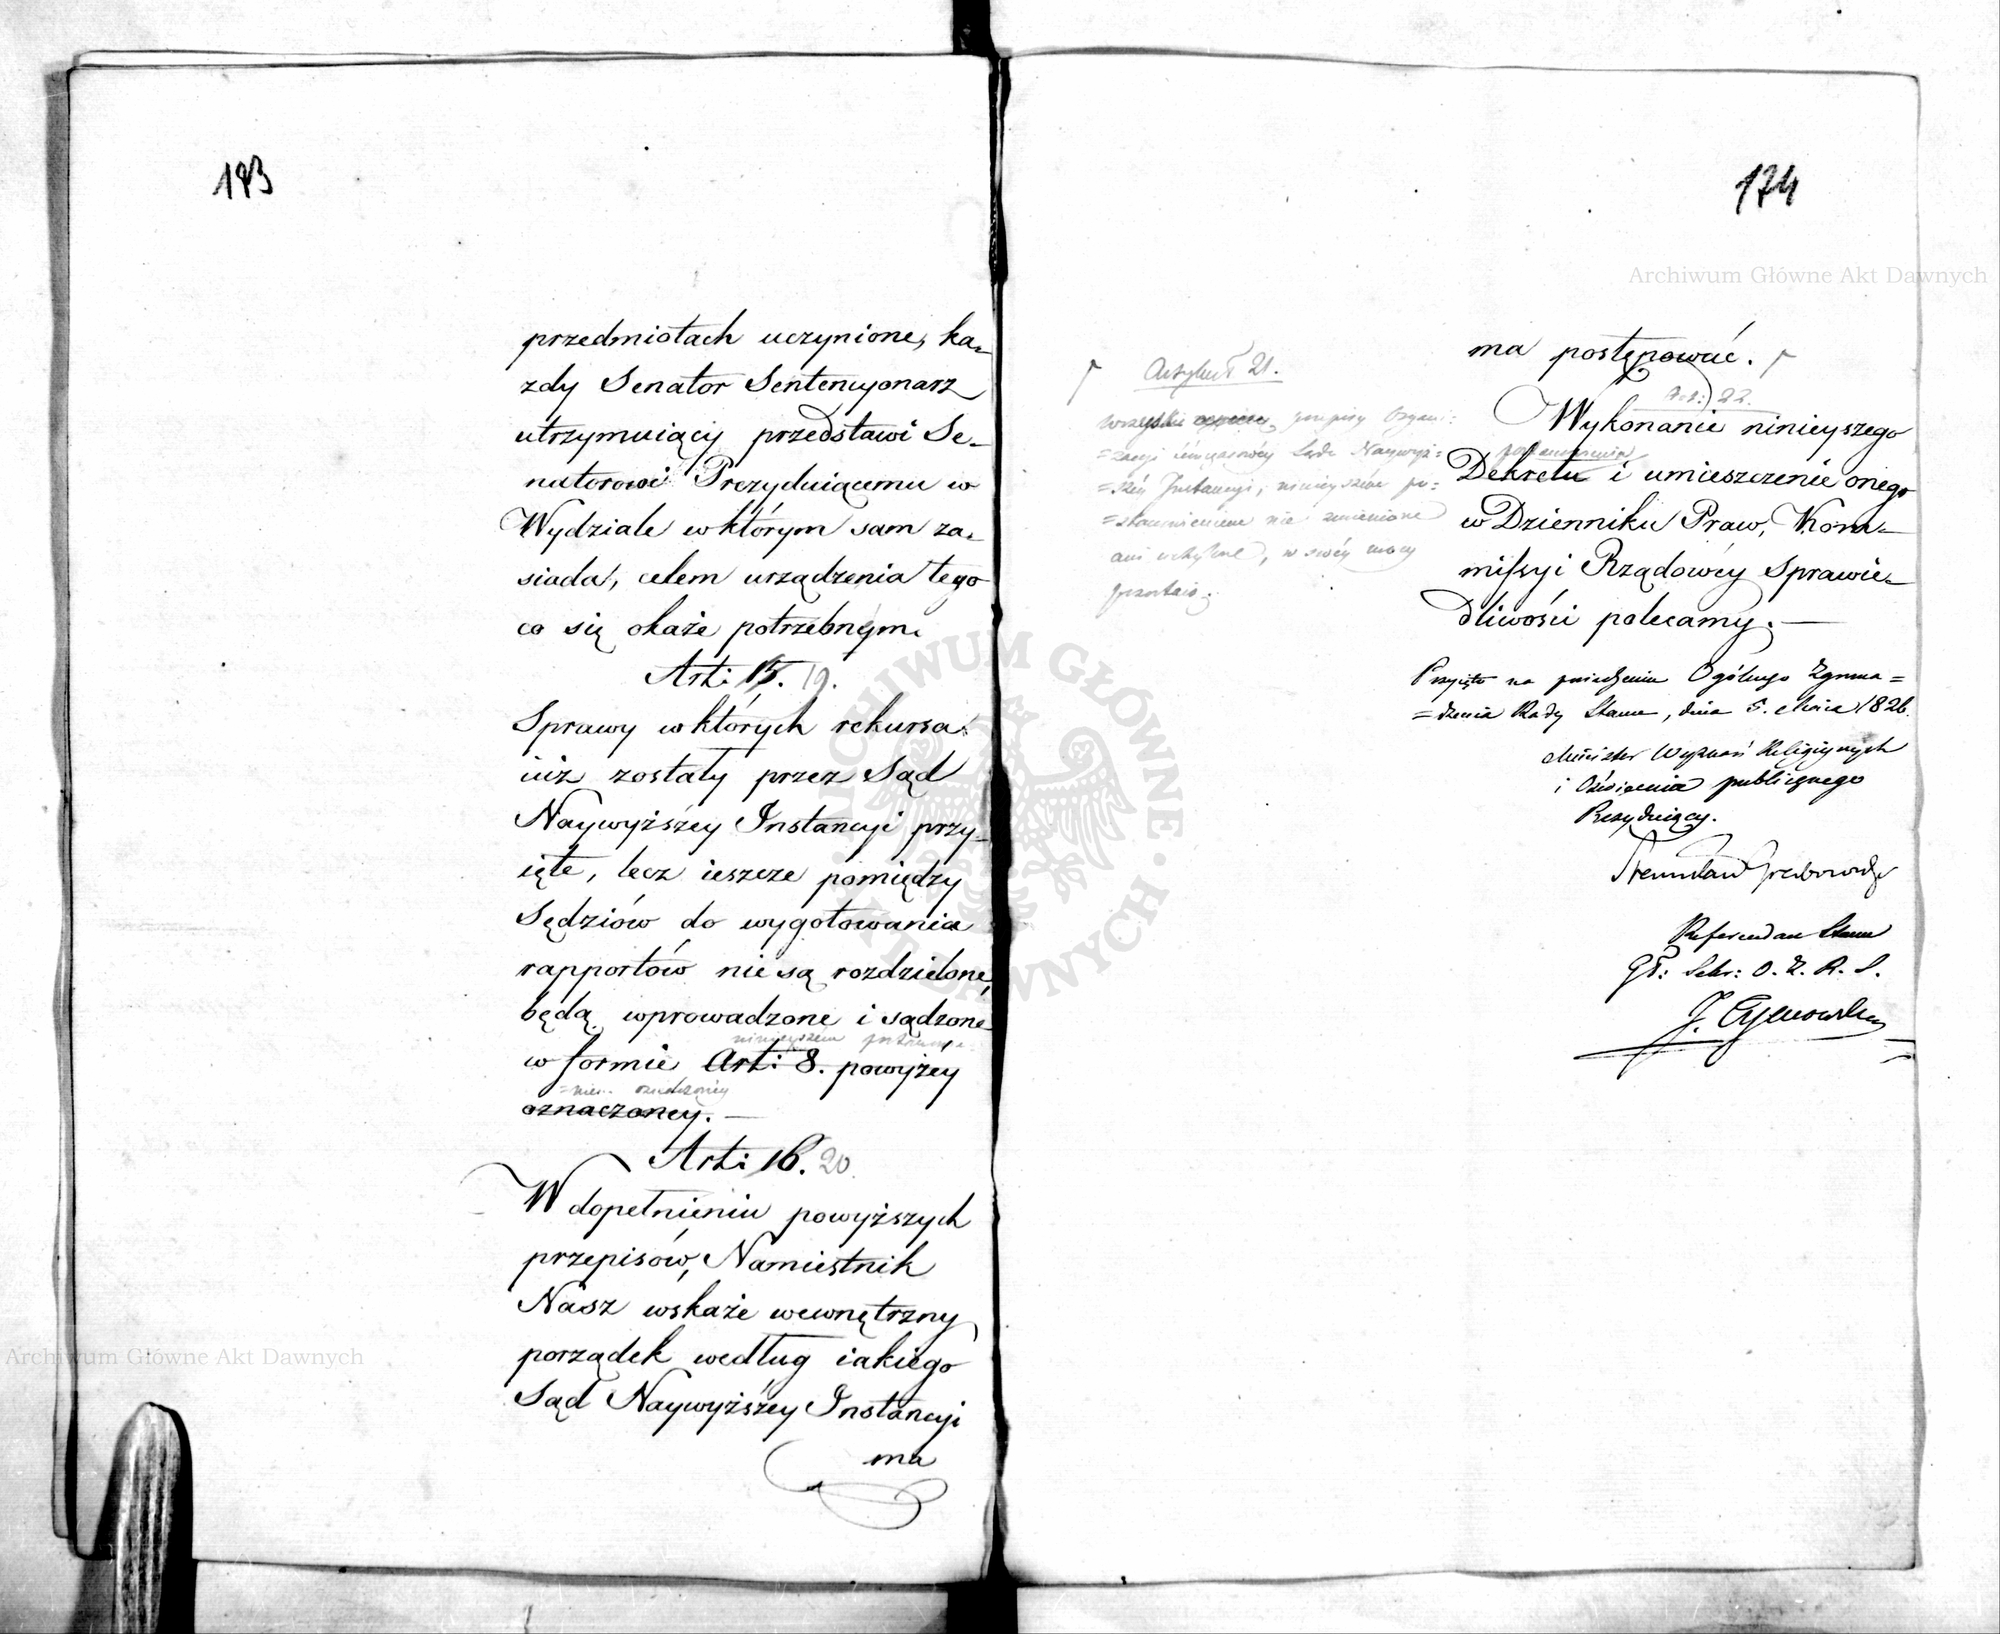 183
przedmiotach uczynione, ka=
zdy Senator Sentencyonarz
utrzymuiący przedstawi Se=
natorowi Prezyduiącemu w
Wydziale w którym sam za=
siada, celem urządzenia tego
co się okaże potrzebnym.
Art: 15. 19.
Sprawy w których rekursa
iuż zostały przez Sąd
Naywyższéy Instancyi przy=
ięte, lecz ieszcze pomiędzy
Sędziów do wygotowania
rapportów nie są rozdzielone,
będą wprowadzone i sądzone
ninieyszém postano=
w formie Art: 8. powyżéy
=niem oznaczonéy
oznaczoney. —
Art: 16. 20
W dopełnieniu powyższych
przepisów, Namiestnik
Nasz wskaże wewnętrzny
porządek według iakiego
Sąd Naywyższéy Instancyi
ma
174
Archiwum Główne Akt Dawnych
ma postępować.
Artykuł 21.
wszystkie przepisy Organi=
=zacyi Sądu Naywyż=
=széy Instancyi, ninieyszém po=
=stanowieniem nie zmienione
ani uchylone, w swéy mocy
pozostaią.
Art: 22.
Wykonanie ninieyszego
postanowienia
Dekretu i umieszczenie onego
w Dzienniku Praw, Kom=
missyi Rządowéy Sprawie=
dliwości polecamy. —
Przyięto na posiedzeniu Ogólnego Zgroma=
=dzenia Rady Stanu, dnia 5. Maia 1826.
Minister Wyznań Religiynych
i Oświecenia publicznego
Prezyduiący.
Stanisław Grabowski
Referendarz Stanu
Gł: Sekr: O. Z. R. S.
J.
Archiwum Główne Akt Dawnych
ARCHIWUM GŁÓWNE AKT DAWNYCH